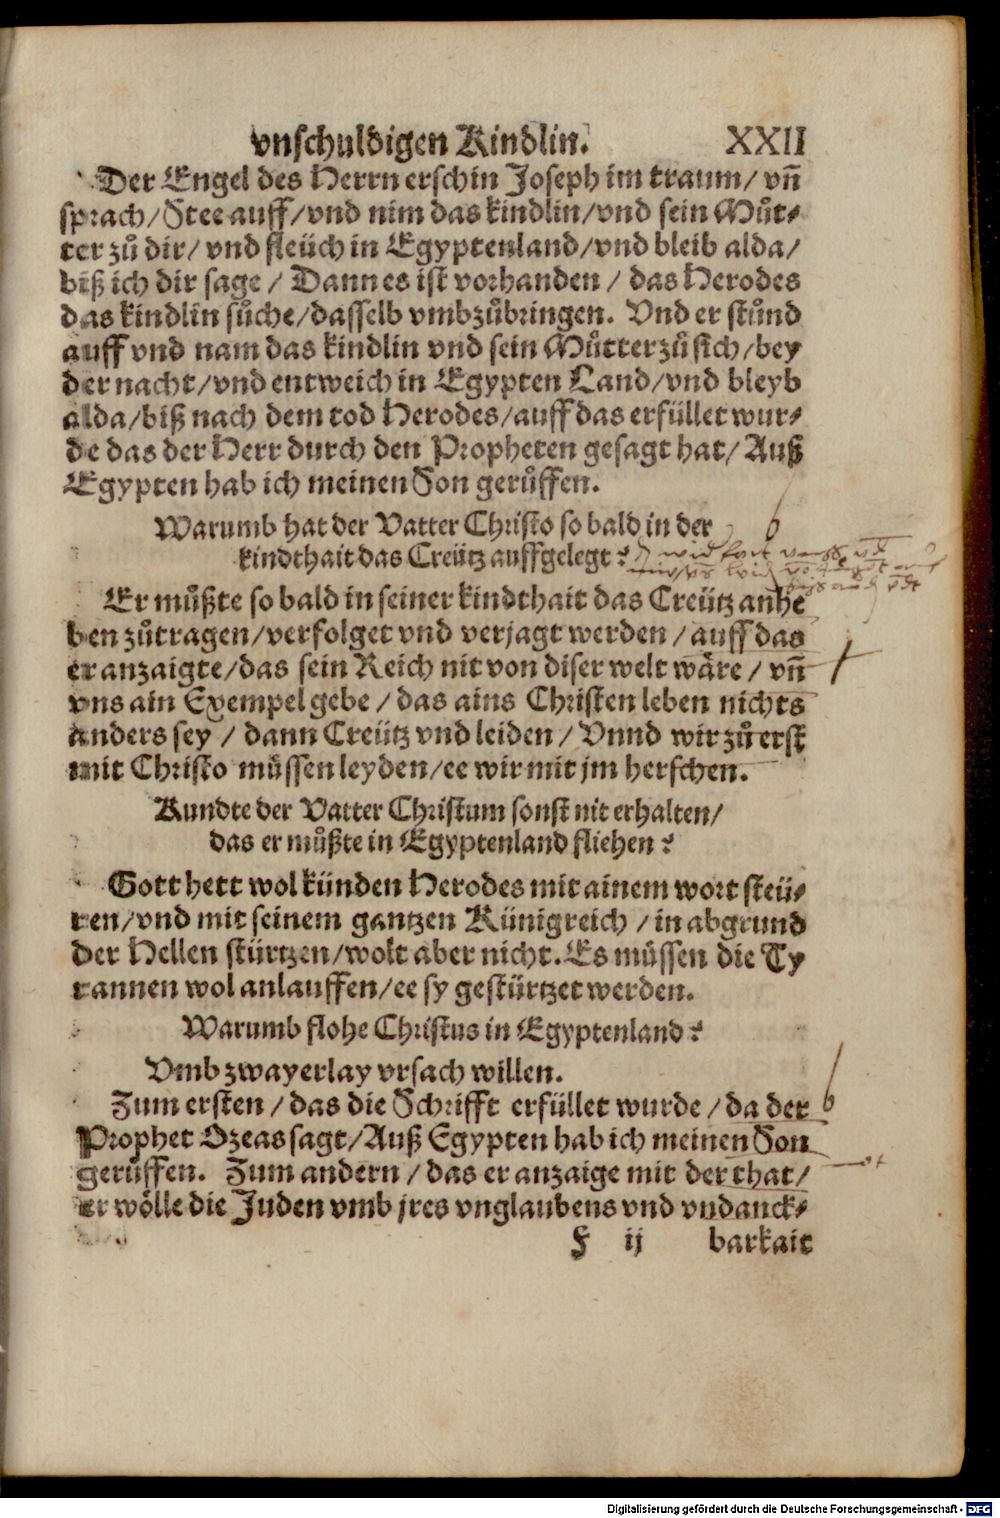 vnschuldigen Kindlin. XXII
Der Engel des Herrn erschin Joseph im traum/ vñ
sprach/ Stee auff/ vnd nim das kindlin/ vnd sein Muͦt-
ter zuͦ dir/ vnd fleüch in Egyptenland/ vnd bleib alda/
biß ich dir sage / Dann es ist vorhanden / das Herodes
das kindlin suͦche/ dasselb vmbzuͦbringen. Vnd er stuͦnd
auff vnd nam das kindlin vnd sein Muͦtter zuͦ sich/ bey
der nacht/ vnd entweich in Egypten Land/ vnd bleyb
alda/ biß nach dem tod Herodes/ auff das erfüllet wur-
de das der Herr durch den Propheten gesagt hat/ Auß
Egypten hab ich meinen Son geruͤffen.
Warumb hat der Vatter Christo so bald in der
kindthait das Creütz auffgelegt?
Er muͦßte so bald in seiner kindthait das Creütz anhe
ben zuͦtragen/ verfolget vnd verjagt werden / auff das
er anzaigte/ das sein Reich nit von diser welt waͤre / vñ
vns ain Exempel gebe / das ains Christen leben nichts
anders sey / dann Creütz vnd leiden / Vnnd wir zuͦ erst
mit Christo muͤssen leyden/ ee wir mit jm herschen.
Kundte der Vatter Christum sonst nit erhalten/
das er muͦßte in Egyptenland fliehen?
Gott hett wol künden Herodes mit ainem wort steü-
ren/ vnd mit seinem gantzen Künigreich / in abgrund
der Hellen stürtzen/ wolt aber nicht. Es muͤssen die Ty
rannen wol anlauffen/ ee sy gestürtzet werden.
Warumb flohe Christus in Egyptenland?
Vmb zwayerlay vrsach willen.
Zum ersten / das die Schrifft erfüllet wurde / da der
Prophet Ozeas sagt/ Auß Egypten hab ich meinen Son
geruͤffen. Zum andern / das er anzaige mit der that/
er woͤlle die Juden vmb jres vnglaubens vnd vndanck-
F ij barkait
Digitalisierung gefördert durch die Deutsche Forschungsgemeinschaft - DFG